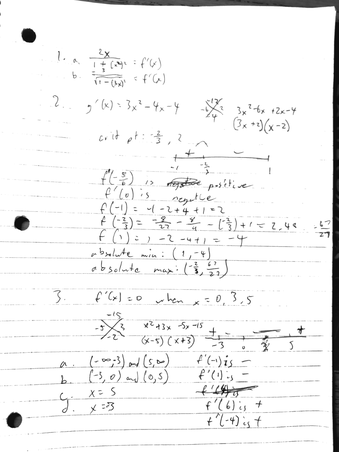 1. a. 2x / 1 + (x²)² = f'(x)
b. 3 / √1 - (3x)² = f'(x)
2. g'(x) = 3x² - 4x - 4
3x² - 6x + 2x - 4
(3x + 2)(x - 2)
crit pt: -2/3, 2
+ -
-1 -2/3 1
f'(-5/6) is positive
f'(0) is negative
f(-1) = -1 - 2 + 4 + 1 = 2
f(-2/3) = -8/27 - 8/9 - (-2/3) + 1 = 2.48 67/27
f(1) = 1 - 2 - 4 + 1 = -4
absolute min: (1, -4)
absolute max: (-2/3, 67/27)
3. f'(x) = 0 when x = 0, 3, 5
-15
-5 3
-2
x² + 3x - 5x - 15
(x - 5)(x + 3)
+ - - +
-3 0 5
a. (-∞, -3) and (5, ∞) f'(-1) is -
b. (-3, 0) and (0, 5) f'(1) is -
c. x = 5
d. x = -3 f'(6) is +
f'(-4) is +